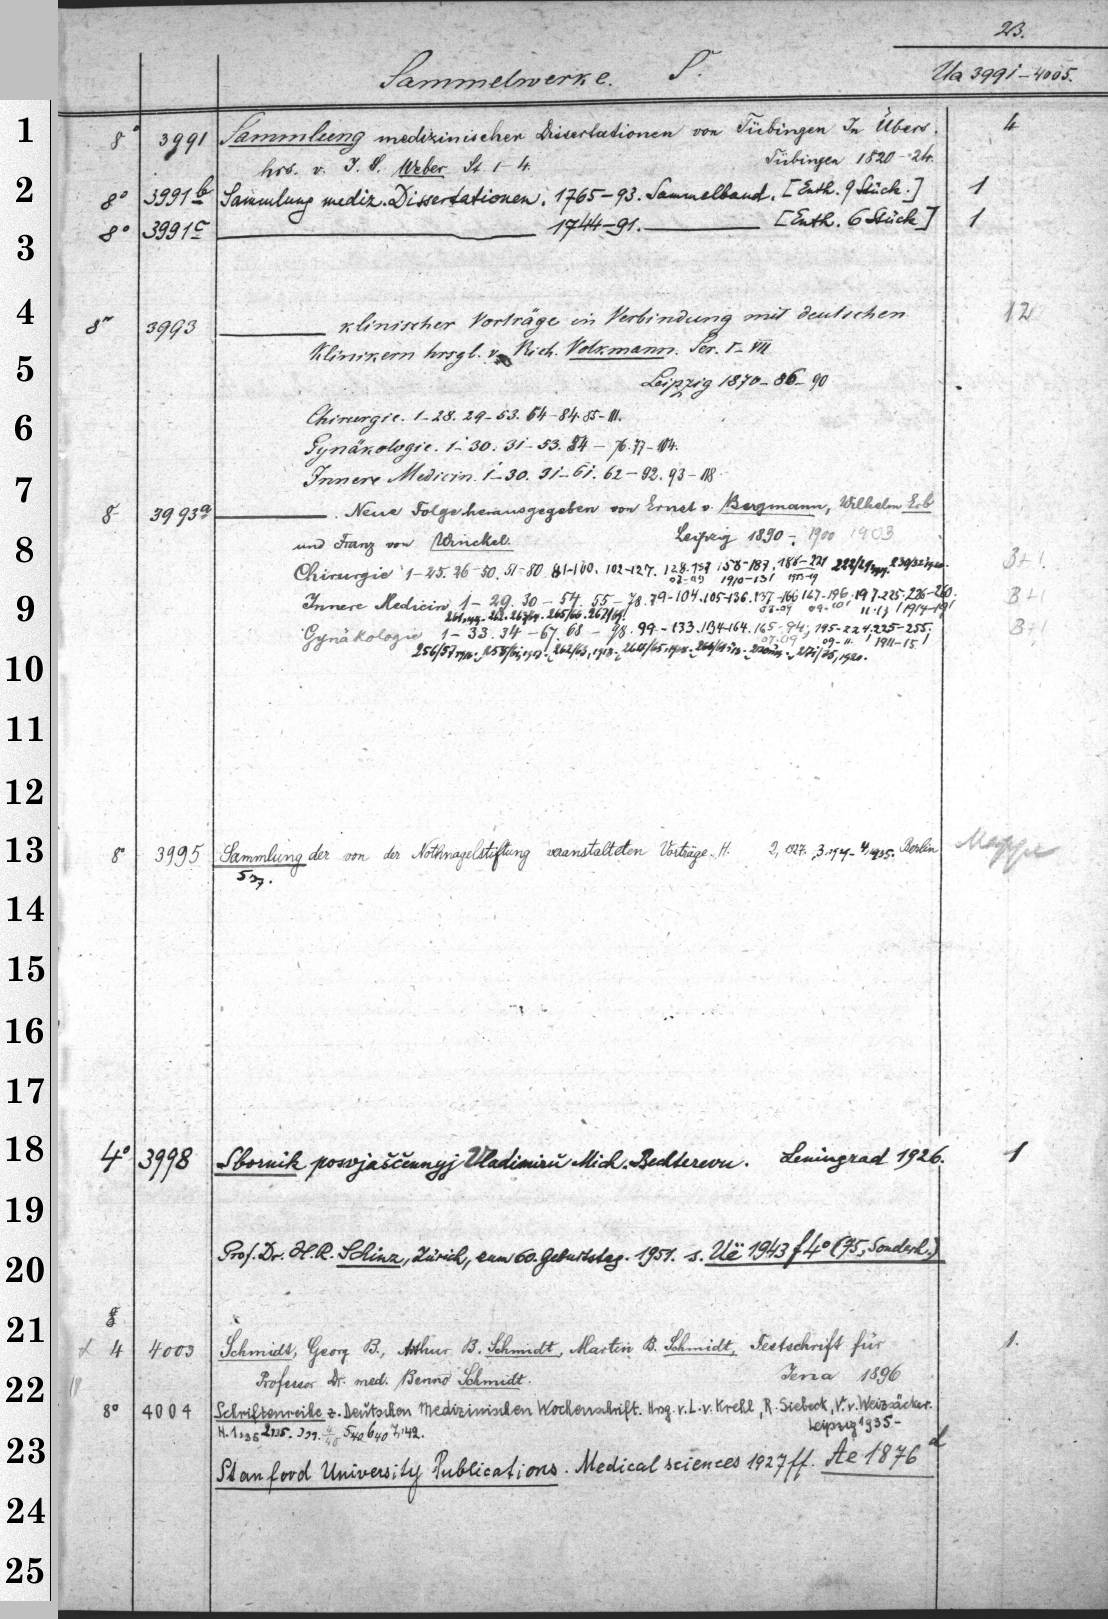 23.
Sammelwerke. S.
Ua 3991–4005.
1
8° 3991 Sammlung medizinischer Dissertationen von Tübingen In Übers. 4
hrs. v. J. S. Weber St 1–4. Tübingen 1820–24.
2
8° 3991 b Sammlung mediz. Dissertationen. 1765–93. Sammelband. [Enth. 9 Stück.] 1
8° 3991 c 1744–91. [Enth. 6 Stück] 1
3
4
8° 3993 klinischer Vorträge in Verbindung mit deutschen 12
Klinikern hrsgl. v. Rich. Volkmann. Ser. I–VII
5
Leipzig 1870–86–90
6
Chirurgie. 1–28. 29–53. 54–84. 85–111.
Gynäkologie. 1–30. 31–53. 54–76. 77–104.
7
Innere Medicin. 1–30. 31–61. 62–92. 93–118.
8° 3993 a Neue Folge herausgegeben von Ernst v. Bergmann, Wilhelm Erb
8
und Franz von Winckel. Leipzig 1890–1900 1903
Chirurgie 1–25. 26–50. 51–80 81–100. 102–127. 128–157 158–187. 188–221 B+1.
1910–13
9
Innere Medicin 1–29. 30–54. 55–78. 79–104. 105–136. 137–166 167–196. 197–225. 226–260. B+1
Gynäkologie 1–33. 34–67. 68–98. 99–133. 134–164. 165–94, 195–224. 225–255. B+1
1911–15
10
11
12
13
8° 3995 Sammlung der von der Nothnagelstiftung veranstalteten Vorträge. H. 2, 1927. 3. 4, 1935. Berlin Mappe
5
14
15
16
17
18
4° 3998 Sbornik posvjaščennyj Vladimirŭ Mich. Bechterevu. Leningrad 1926. 1
19
Prof. Dr. H. R. Schinz, Zürich, zum 60. Geburtstag. 1951. s. Uë 1943 f 4° (75, Sonderh.)
20
21
8
4 4003 Schmidt, Georg B., Arthur B. Schmidt, Martin B. Schmidt, Festschrift für 1.
22
Professor Dr. med. Benno Schmidt. Jena 1896
8° 4004 Schriftenreihe z. Deutschen Medizinischen Wochenschrift. Hrsg. v. L. v. Krehl, R. Siebeck, V. v. Weizsäcker.
Leipzig 1935–
23
Stanford University Publications. Medical sciences 1927 ff. Ae 1876 d
24
25